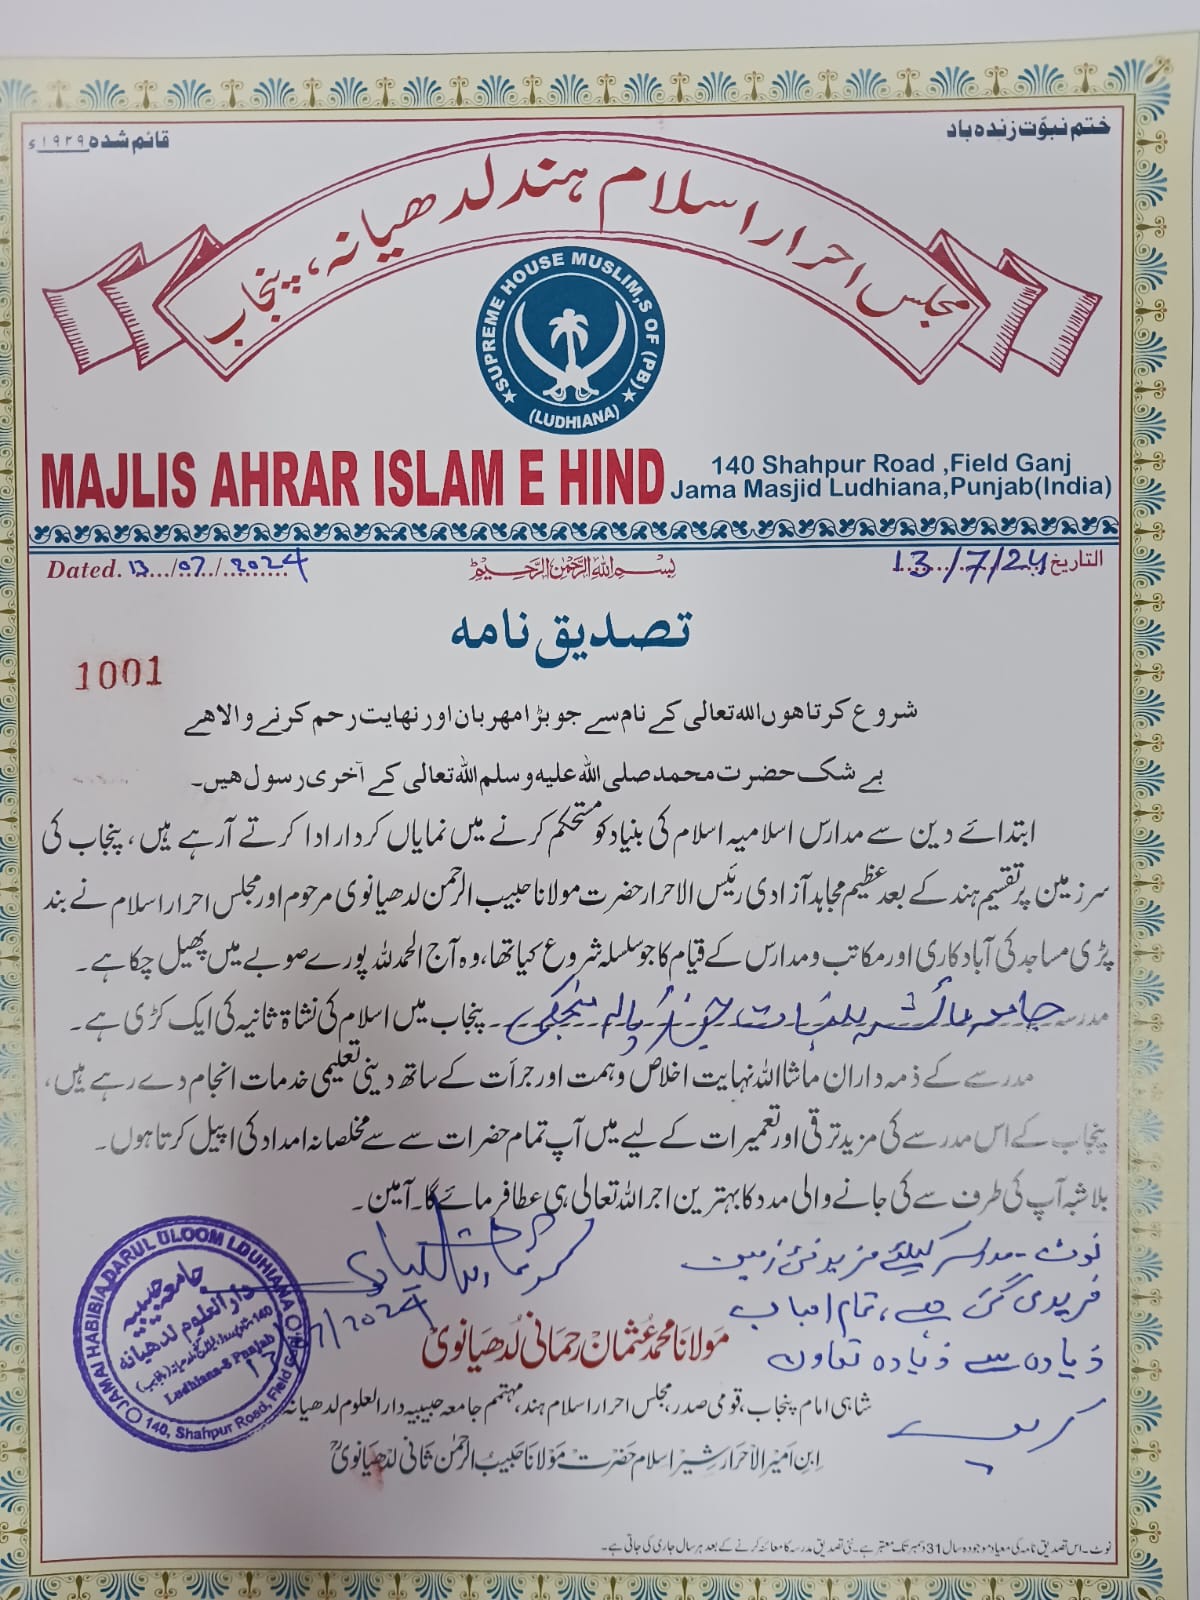 ختم نبوّت زندہ باد
قائم شدہ ۱۹۲۹ء
مجلس احرار اسلام ہند لدھیانہ، پنجاب
SUPREME HOUSE MUSLIM,S OF (PB)
(LUDHIANA)
MAJLIS AHRAR ISLAM E HIND
140 Shahpur Road ,Field Ganj
Jama Masjid Ludhiana,Punjab(India)
Dated. 13/07/2024
بسم اللہ الرحمن الرحیم
التاریخ 13/7/24
تصدیق نامہ
1001
شروع کرتا ھوں اللہ تعالی کے نام سے جو بڑا مھربان اور نھایت رحم کرنے والا ھے
بے شک حضرت محمد صلی اللہ علیہ وسلم اللہ تعالی کے آخری رسول ھیں۔
ابتدائے دین سے مدارس اسلامیہ اسلام کی بنیاد کو مستحکم کرنے میں نمایاں کردار ادا کرتے آرہے ہیں، پنجاب کی
سرزمین پر تقسیم ہند کے بعد عظیم مجاہد آزادی رئیس الاحرار حضرت مولانا حبیب الرحمن لدھیانوی مرحوم اور مجلس احرار اسلام نے بند
پڑی مساجد کی آباد کاری اور مکاتب و مدارس کے قیام کا جو سلسلہ شروع کیا تھا، وہ آج الحمدللہ پورے صوبے میں پھیل چکا ہے۔
مدرسہ جامعہ عائشہ للبنات پنجاب میں اسلام کی نشاۃ ثانیہ کی ایک کڑی ہے۔
مدرسے کے ذمہ داران ماشااللہ نہایت اخلاص وہمت اور جرأت کے ساتھ دینی تعلیمی خدمات انجام دے رہے ہیں،
پنجاب کے اس مدرسے کی مزید ترقی اور تعمیرات کے لیے میں آپ تمام حضرات سے سے مخلصانہ امداد کی اپیل کرتا ہوں۔
بلا شبہ آپ کی طرف سے کی جانے والی مدد کا بہترین اجر اللہ تعالی ہی عطا فرمائے گا۔ آمین۔
نوٹ - مدرسہ کیلئے مزید نئی زمین
خریدی گئی ہے، تمام احباب
زیادہ سے زیادہ تعاون
کریں
JAMAI HABIBIA DARUL ULOOM LDUHIANA
جامعہ حبیبیہ
دارالعلوم لدھیانہ
Ludhiana-8 Punjab
140, Shahpur Road, Field Ganj
13/7/2024
مولانا محمد عثمان رحمانی لدھیانوی
شاہی امام پنجاب، قومی صدر، مجلس احرار اسلام ہند، مہتمم جامعہ حبیبیہ دارالعلوم لدھیانہ
ابن امیر الاحرار شیر اسلام حضرت مولانا حبیب الرحمٰن ثانی لدھیانوی
نوٹ۔ اس تصدیق نامہ کی معیاد موجودہ سال 31 دسمبر تک معتبر ہے۔ نئی تصدیق مدرسہ کا معائنہ کرنے کے بعد ہر سال جاری کی جاتی ہے۔